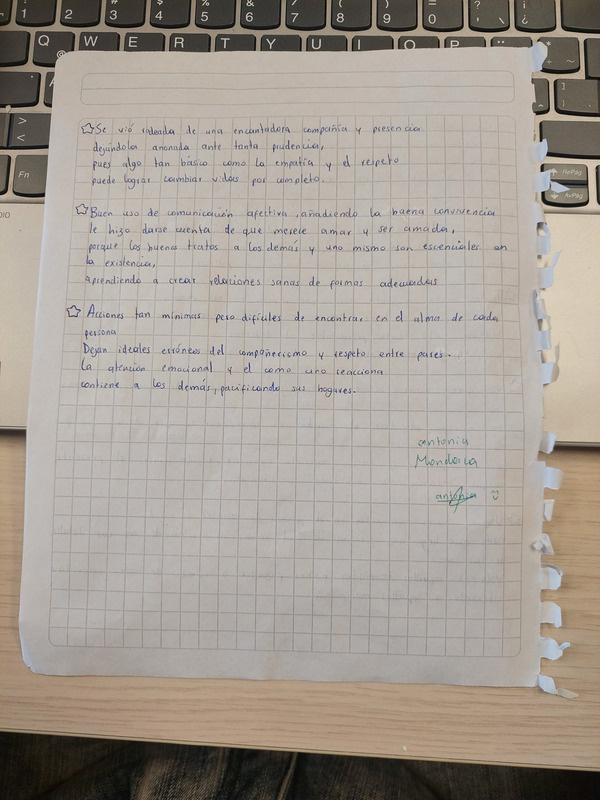 1 2 3 4 5 6 7 8 9 0 ? ' \ ¡ ¿
Q W E R T Y U I O P
@
>
<
Fn
RePág
AvPág
Se vió rodeada de una encantadora compañía y presencia
dejándola anonada ante tanta prudencia,
pues algo tan básico como la empatía y el respeto
puede lograr cambiar vidas por completo.
Buen uso de comunicación afectiva, añadiendo la buena convivencia
le hizo darse cuenta de que merece amar y ser amada,
porque los buenos tratos a los demás y uno mismo son escenciales en
la existencia,
Aprendiendo a crear relaciones sanas de formas adecuadas
Acciones tan mínimas pero difíciles de encontrar en el alma de cada
persona
Dejan ideales erróneos del compañerismo y respeto entre pares.
La atención emocional y el como uno reacciona
contiene a los demás, pacificando sus hogares.
antonia
Mondaca
antonia